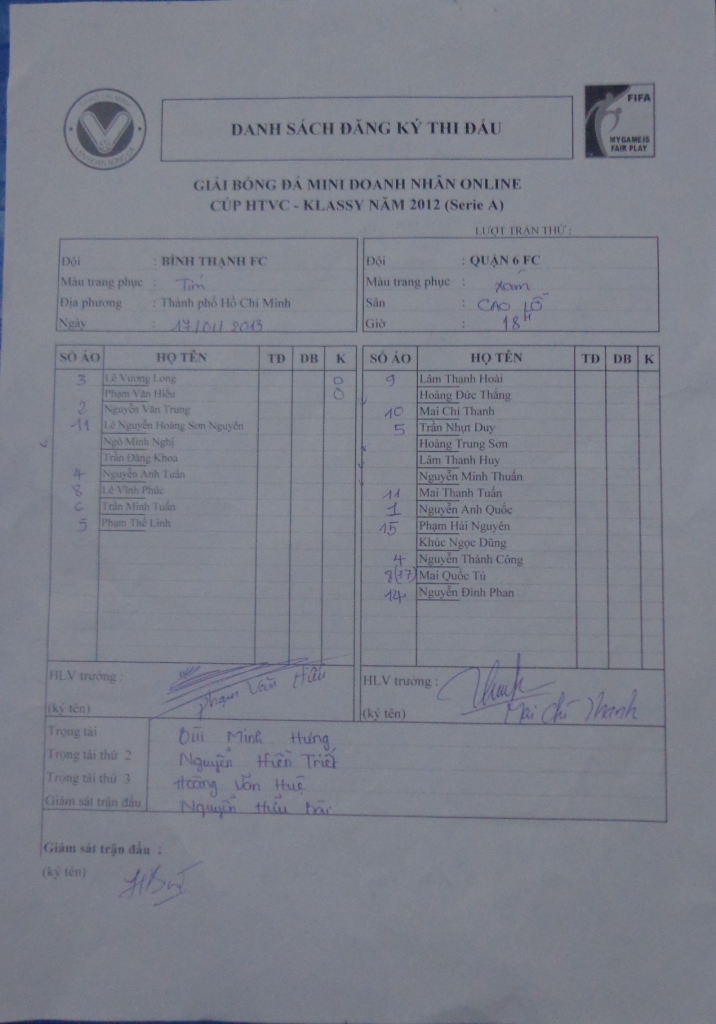 DANH SÁCH ĐĂNG KÝ THI ĐẤU
FIFA
MY GAME IS
FAIR PLAY
GIẢI BÓNG ĐÁ MINI DOANH NHÂN ONLINE
CÚP HTVC - KLASSY NĂM 2012 (Serie A)
LƯỢT TRẬN THỨ :
Đội : BÌNH THẠNH FC
Màu trang phục : Tím
Địa phương : Thành phố Hồ Chí Minh
Ngày : 17/01/2013
Đội : QUẬN 6 FC
Màu trang phục : xám
Sân : CAO LỖ
Giờ : 18H
SỐ ÁO HỌ TÊN TĐ DB K
3 Lê Vương Long 0
Phạm Văn Hiếu 0
2 Nguyễn Văn Trung
11 Lê Nguyễn Hoàng Sơn Nguyên
Ngô Minh Nghị
Trần Đăng Khoa
4 Nguyễn Anh Tuấn
8 Lê Vĩnh Phúc
6 Trần Minh Tuấn
5 Phạm Thế Linh
HLV trưởng :
(ký tên)
Phạm Văn Hiếu
SỐ ÁO HỌ TÊN TĐ DB K
9 Lâm Thanh Hoài
Hoàng Đức Thắng
10 Mai Chí Thanh
5 Trần Nhựt Duy
Hoàng Trung Sơn
Lâm Thanh Huy
Nguyễn Minh Thuấn
11 Mai Thanh Tuấn
1 Nguyễn Anh Quốc
15 Phạm Hải Nguyên
Khúc Ngọc Dũng
4 Nguyễn Thành Công
8(17) Mai Quốc Tú
14 Nguyễn Đình Phan
HLV trưởng :
(ký tên) Mai Chí Thanh
Trọng tài Bùi Minh Hưng
Trọng tài thứ 2 Nguyễn Hiền Triết
Trọng tài thứ 3 Hoàng Văn Huệ
Giám sát trận đấu Nguyễn Hữu
Giám sát trận đấu :
(ký tên)